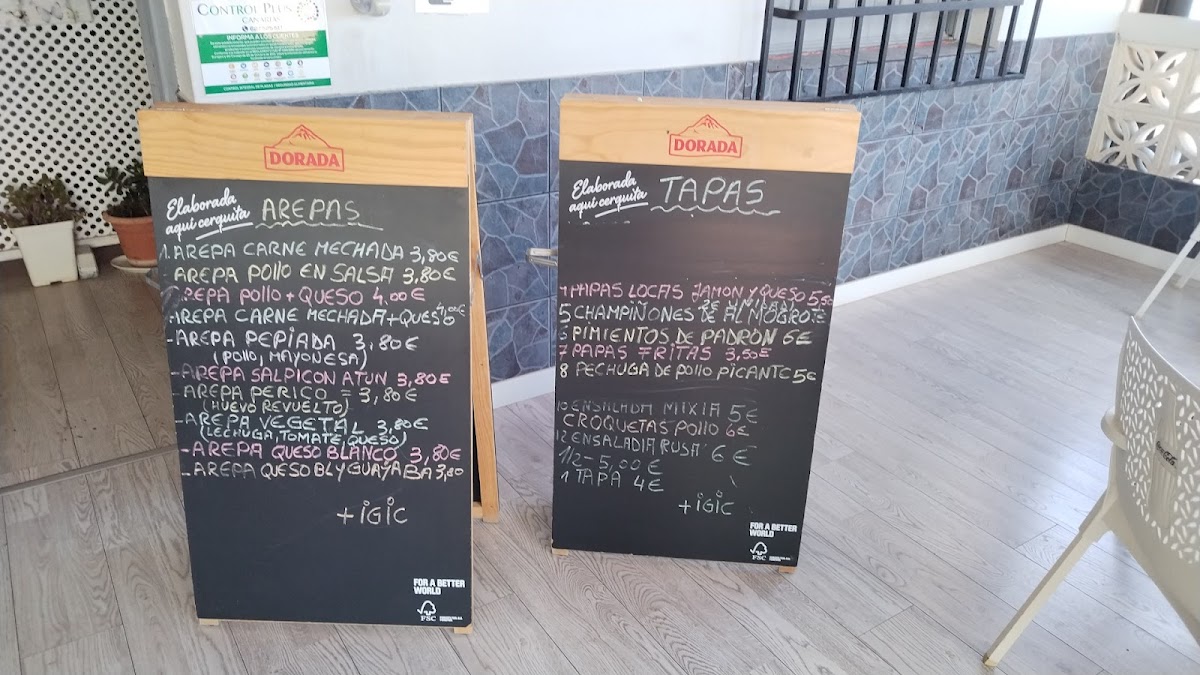 CONTROL PLUS
CANARIAS
INFORMA A LOS CLIENTES
DORADA
Elaborada
aquí cerquita
AREPAS
1. AREPA CARNE MECHADA 3,80€
AREPA POLLO EN SALSA 3,80€
AREPA POLLO + QUESO 4,00€
AREPA CARNE MECHADA + QUESO 4,00€
- AREPA PEPIADA 3,80€
(POLLO, MAYONESA)
- AREPA SALPICON ATUN 3,80€
- AREPA PERICO = 3,80€
(HUEVO REVUELTO)
- AREPA VEGETAL 3,80€
(LECHUGA, TOMATE, QUESO)
- AREPA QUESO BLANCO 3,80€
- AREPA QUESO BL Y GUAYABA 3,80
+ IGIC
FOR A BETTER
WORLD
FSC
DORADA
Elaborada
aquí cerquita
TAPAS
4 PAPAS LOCAS JAMON Y QUESO 5,50
5 CHAMPIÑONES DE ALMOGROTE
PIMIENTOS DE PADRON 6€
7 PAPAS FRITAS 3,50€
8 PECHUGA DE POLLO PICANTE 5€
10 ENSALADA MIXTA 5€
CROQUETAS POLLO 6€
12 ENSALADIA RUSA 6€
1/2 - 5,00€
1 TAPA 4€
+ IGIC
FOR A BETTER
WORLD
FSC